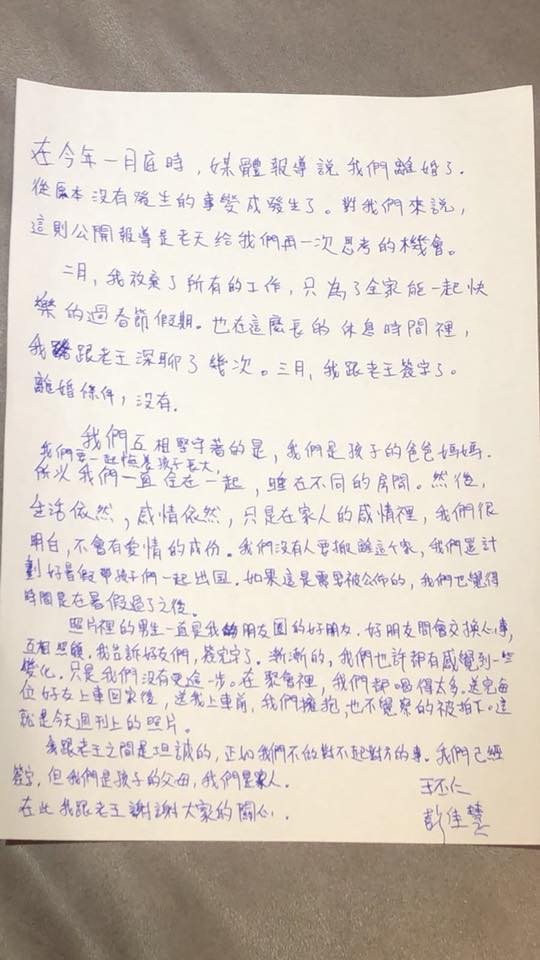 在今年一月底時，媒體報導說我們離婚了.
從原本沒有發生的事變成發生了。對我們來說，
這則公開報導是老天給我們再一次思考的機會。
二月，我放棄了所有的工作，只為了全家能一起快
樂的過春節假期。也在這麼長的休息時間裡，
我跟老王深聊了幾次。三月，我跟老王簽字了。
離婚條件，沒有.
我們互相堅守著的是，我們是孩子的爸爸媽媽.
我們要一起陪養孩子長大，
所以我們一直住在一起，睡在不同的房間。然後，
生活依然，感情依然，只是在家人的感情裡，我們很
明白，不會有愛情的成份。我們沒有人要搬離這個家，我們還計
劃好暑假帶孩子們一起出国。如果這是需要被公佈的，我們也覺得
時間是在暑假過了之後。
照片裡的男生一直是我朋友圈的好朋友.好朋友間會交換心事，
互相照顧.我告訴好友們，簽完字了.漸漸的，我們也許都有感覺到一些
變化.只是我們沒有更進一步。在聚會裡，我們都喝得太多.送完每
位好友上車回家後，送我上車前，我們擁抱，也不覺察的被拍下.這
就是今天週刊上的照片。
我跟老王之間是坦誠的，正如我們不做對不起對方的事.我們已經
簽字，但我們是孩子的父母，我們是家人.
在此我跟老王謝謝大家的關心.
王丕仁
彭佳慧